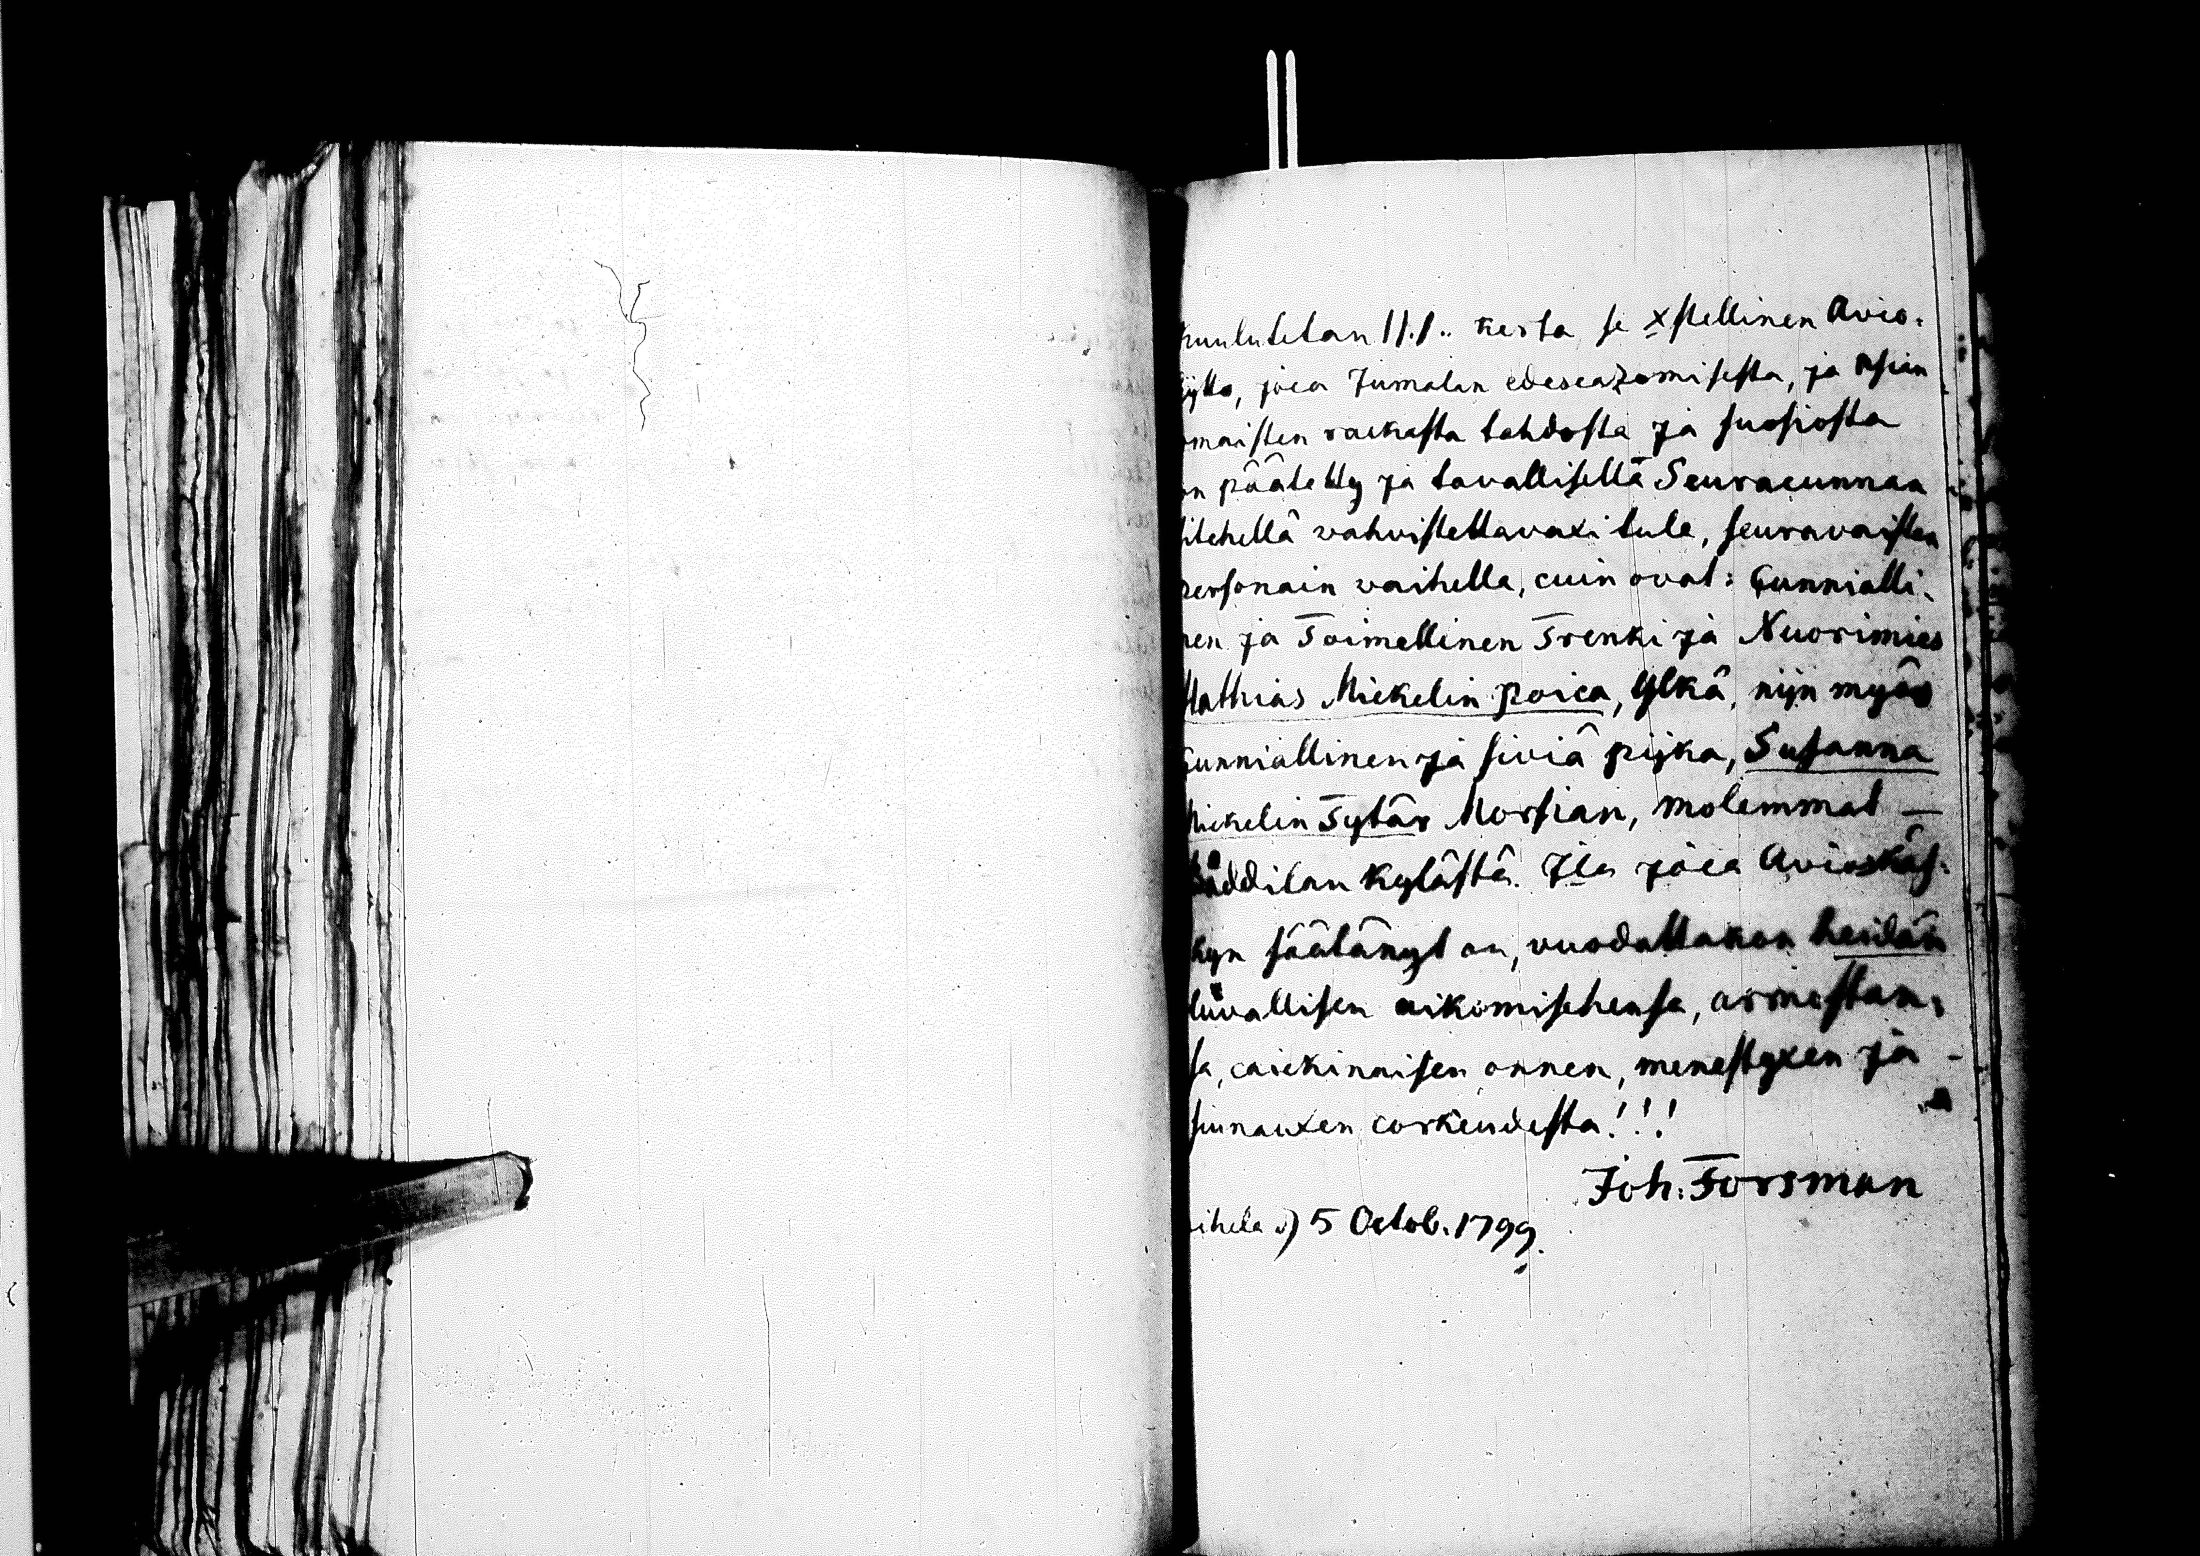 kuulutetan 11.1.. kerta se Xstellinen Avio-
jytto, joca Jumalan edescazomisesta, ja Asian
omaisten rackasta tahdosta ja suosiosta
on päätetty ja tavallisella Seuracunnan
sitehellä vahvistettavaxi tule, seuravaisten
personain vaihella, cuin ovat: Cunnialli-
nen ja Toimellinen Trenki ja Nuorimies
Mathias Mickelin poica, Ylkä, nijn myös
Cunniallinen ja siviä pijka, Susanna
Mickelin Tytär Morsian, molemmat —
Båddilan kylästä. Ja joca Avioskäs-
kyn säätänyt on, vuodattakon heidän
luvallisen aikomisehensa, armostan-
sa, caickinaisen onnen, menestyxen ja -
siunauxen corkeudesta!!!
Joh: Forsman
5 Octob. 1799.